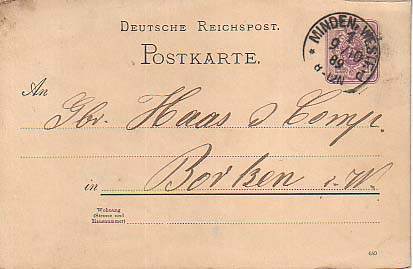 DEUTSCHE REICHSPOST.
POSTKARTE.
MINDEN, WESTF.
9/10
89
8-9N
An
Gbr. Haas & Comp.
in Borken i. W.
Wohnung
(Strasse und
Hausnummer)